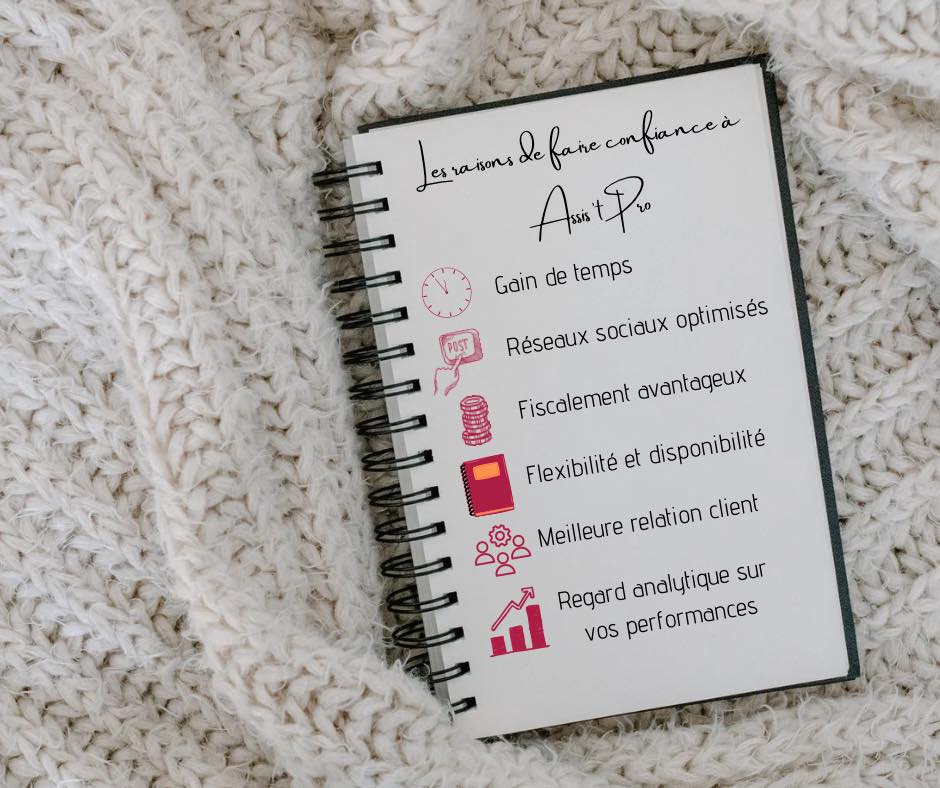 Les raisons de faire confiance à
Assis't Pro
Gain de temps
POST
Réseaux sociaux optimisés
Fiscalement avantageux
Flexibilité et disponibilité
Meilleure relation client
Regard analytique sur
vos performances